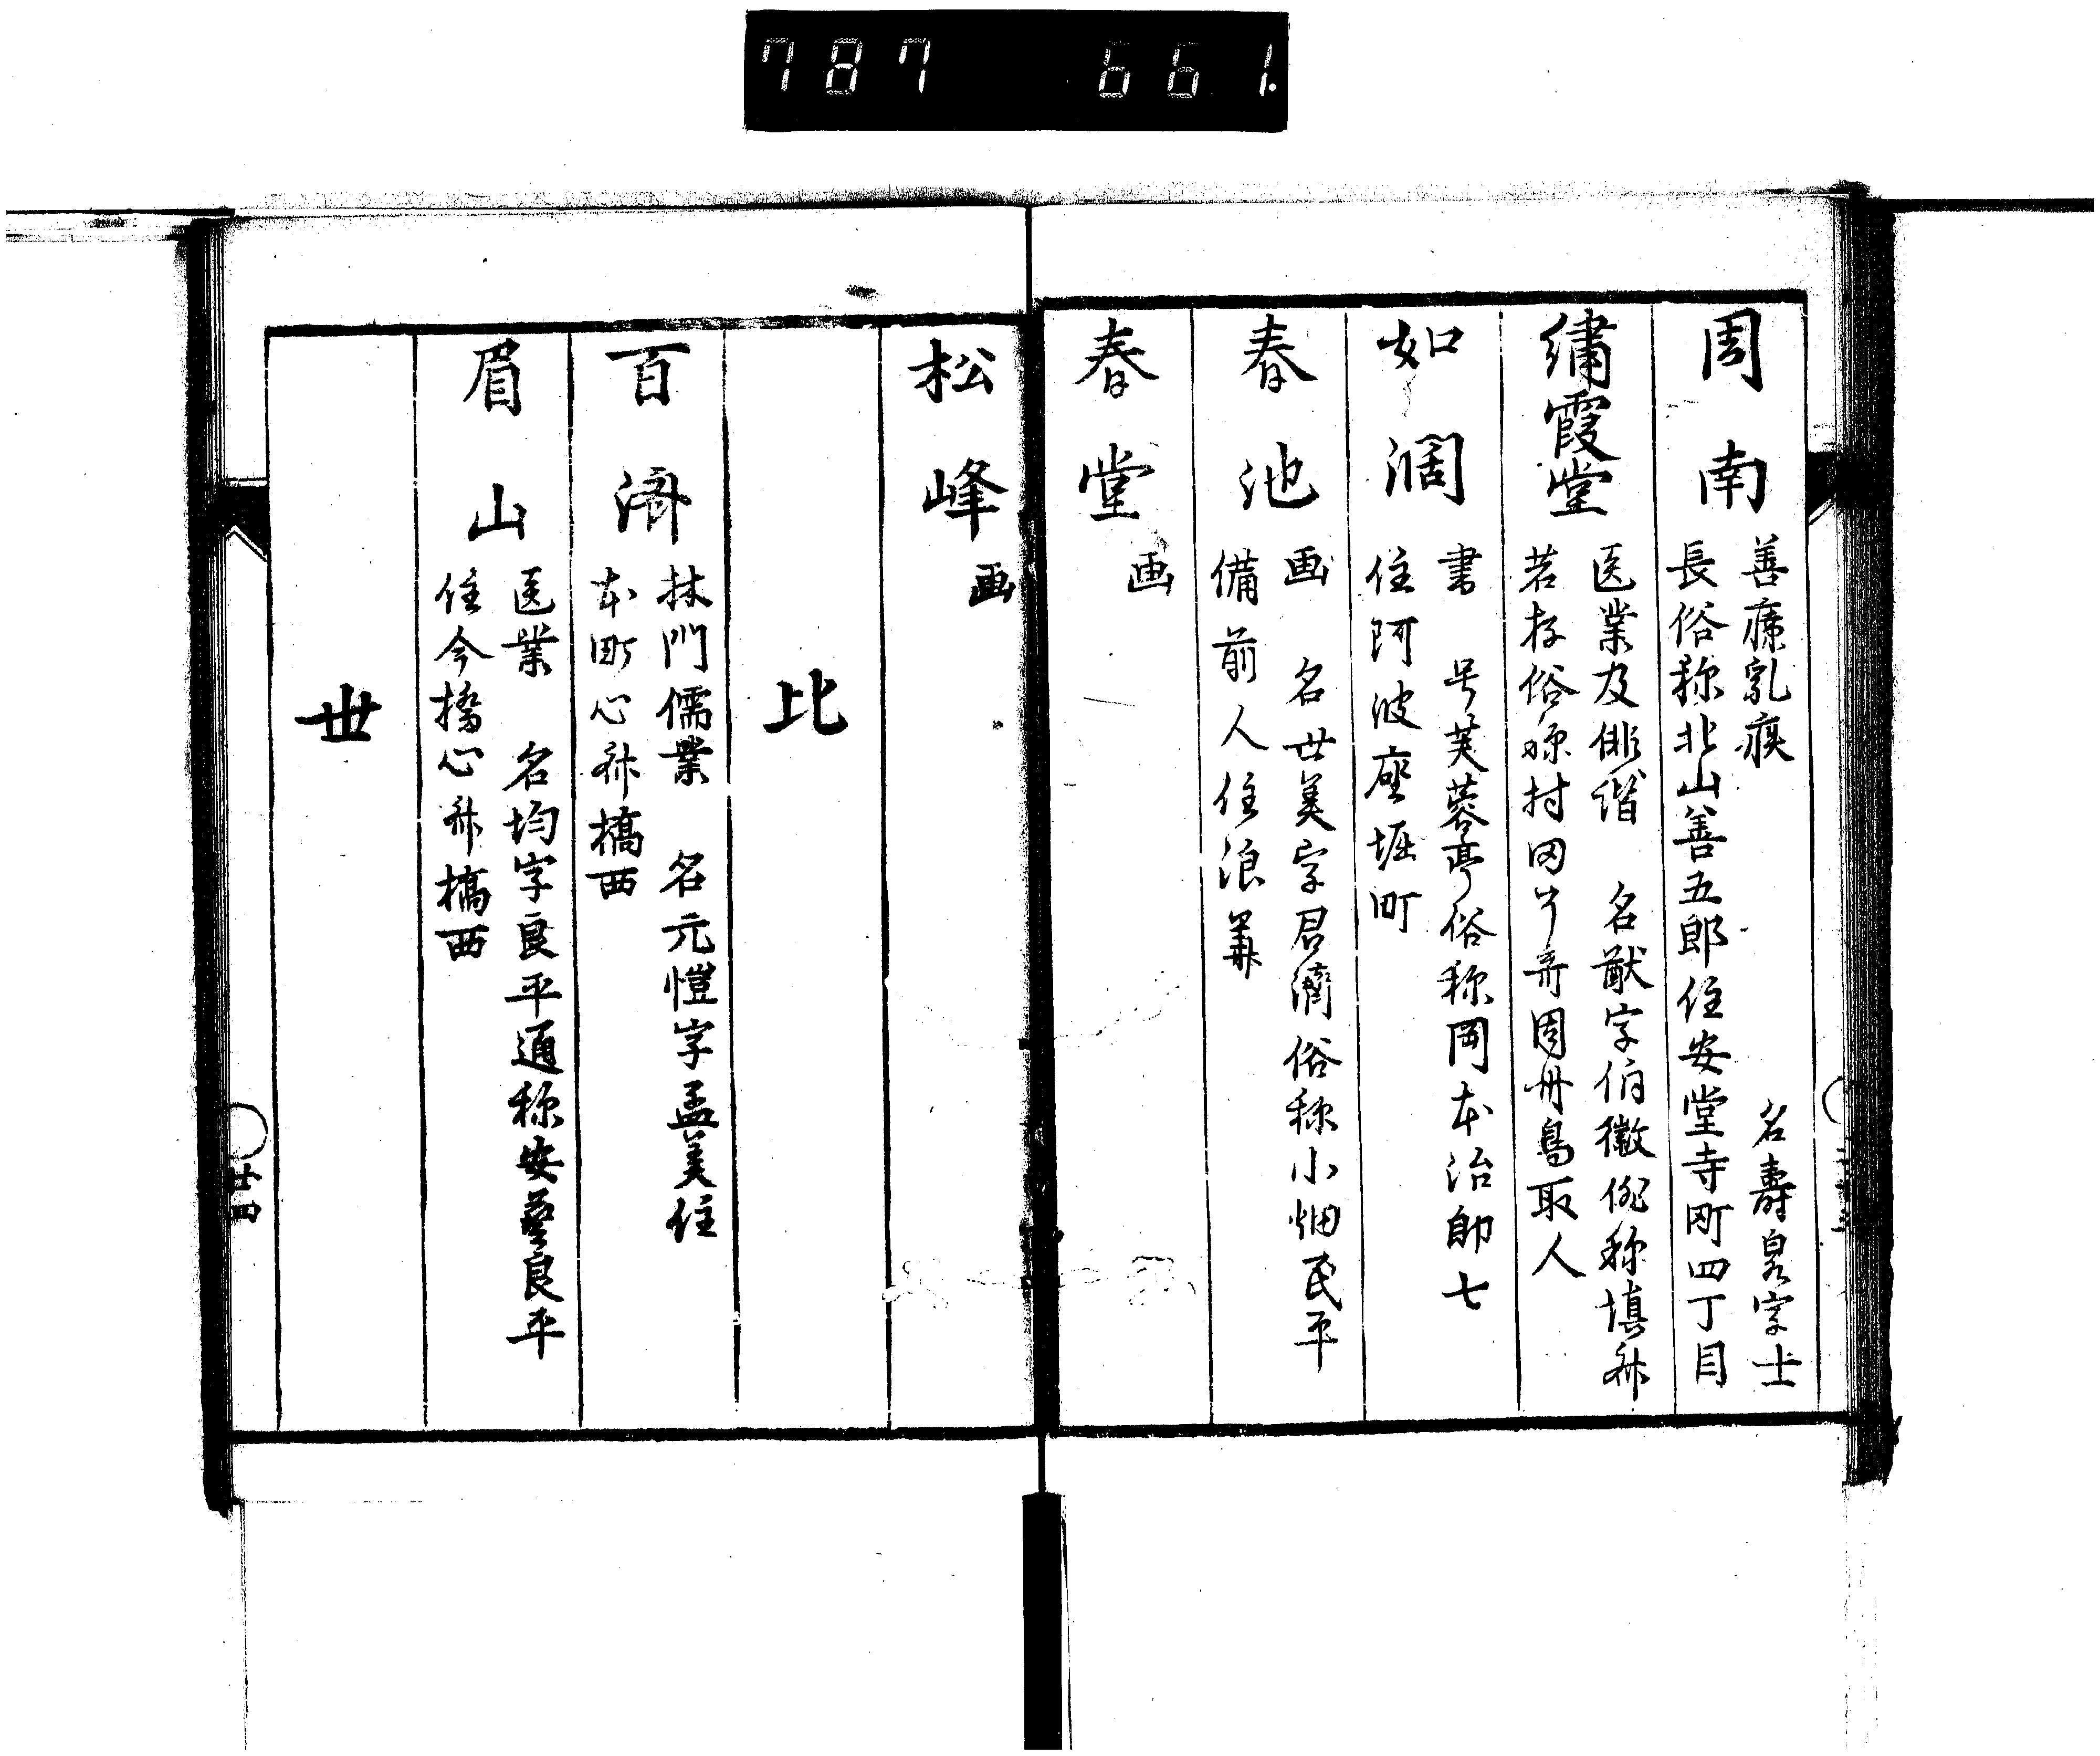 787 661.
周南
善療乳疾 名壽泉字士
長俗称北山善五郎住安堂寺町四丁目
繡霞堂
医業及俳諧 名猷字伯徴俗称填斎
若存俗称村田 斎因州鳥取人
如濶
書 号芙蓉亭俗称岡本治郎七
住阿波座堀町
春池
画 名世美字君濟俗称小畑民平
備前人住浪華
春堂
画
松峰
画
比
百済
林門儒業 名元愷字孟美住
本町心斎橋西
眉山
医業 名均字良平通称安藝良平
住今橋心斎橋西
世
廿四